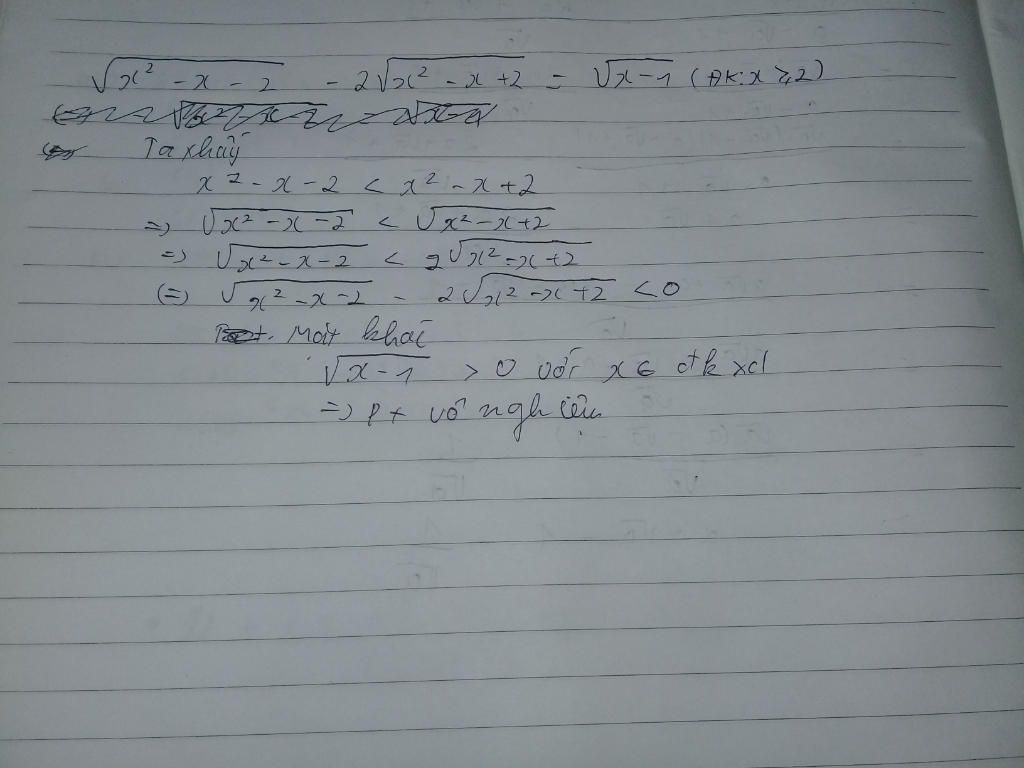 √(x² - x - 2) - 2√(x² - x + 2) = √(x - 1) (ĐK: x ≥ 2)
Ta thấy
x² - x - 2 < x² - x + 2
=> √(x² - x - 2) < √(x² - x + 2)
=> √(x² - x - 2) < 2√(x² - x + 2)
(=) √(x² - x - 2) - 2√(x² - x + 2) < 0
Mặt khác
√(x - 1) > 0 với x ∈ đk xđ
=> pt vô nghiệm